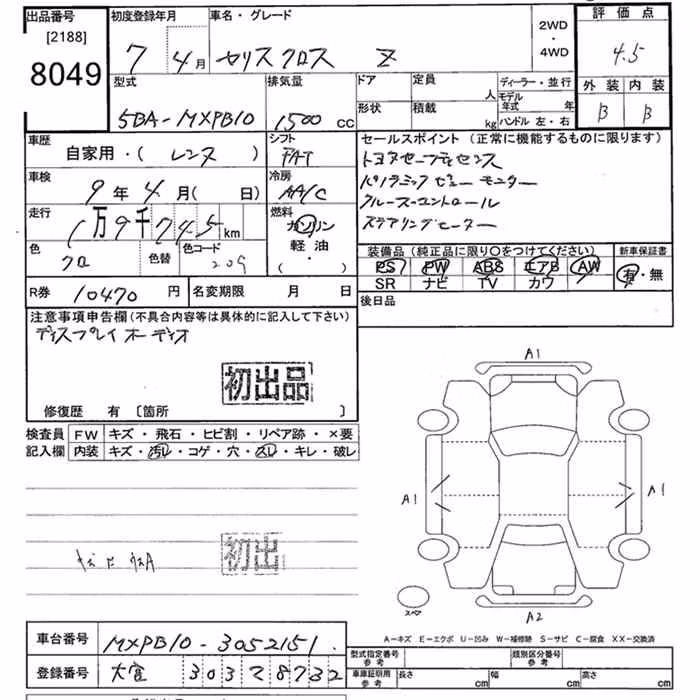 出品番号 初度登録年月 車名・グレード 2WD ・ 4WD 評価点
[2188]
8049
7 4月 ヤリスクロス Z 4.5
型式 排気量 ドア 定員 人 ディーラー・並行 外装 内装
5BA-MXPB10 1500 CC 形状 積載 kg モデル年式 年 ハンドル 左・右 B B
車歴 シフト セールスポイント(正常に機能するものに限ります)
自家用・( レンタ ) FAT トヨタセーフティセンス
車検 冷房 パノラミックビューモニター
9年 4月( 日) AA/C クルーズコントロール
走行 燃料 ステアリングヒーター
1万9千745km ガソリン 軽油 ・( )
色 色替 色コード 装備品(純正品に限り〇をつけてください) 新車保証書
クロ 209 PS PW ABS エアB AW 有・無
SR ナビ TV カワ
R券 10470円 名変期限 月 日 後日品
注意事項申告欄(不具合内容等は具体的に記入して下さい)
ディスプレイオーディオ
初出品
修復歴 有 〔箇所 〕
検査員 FW キズ・飛石・ヒビ割・リペア跡・×要
記入欄 内装 キズ・汚レ・コゲ・穴・スレ・キレ・破レ
A1
A1
A1
初出
スペア
A2
A-キズ E-エクボ U-凹み W-補修跡 S-サビ C-腐食 XX-交換済
車台番号 MXPB10-3052151
型式指定番号 参考 類別区分番号 参考
登録番号 303 8732
車庫証明用 参考 長さ cm 幅 cm 高さ cm